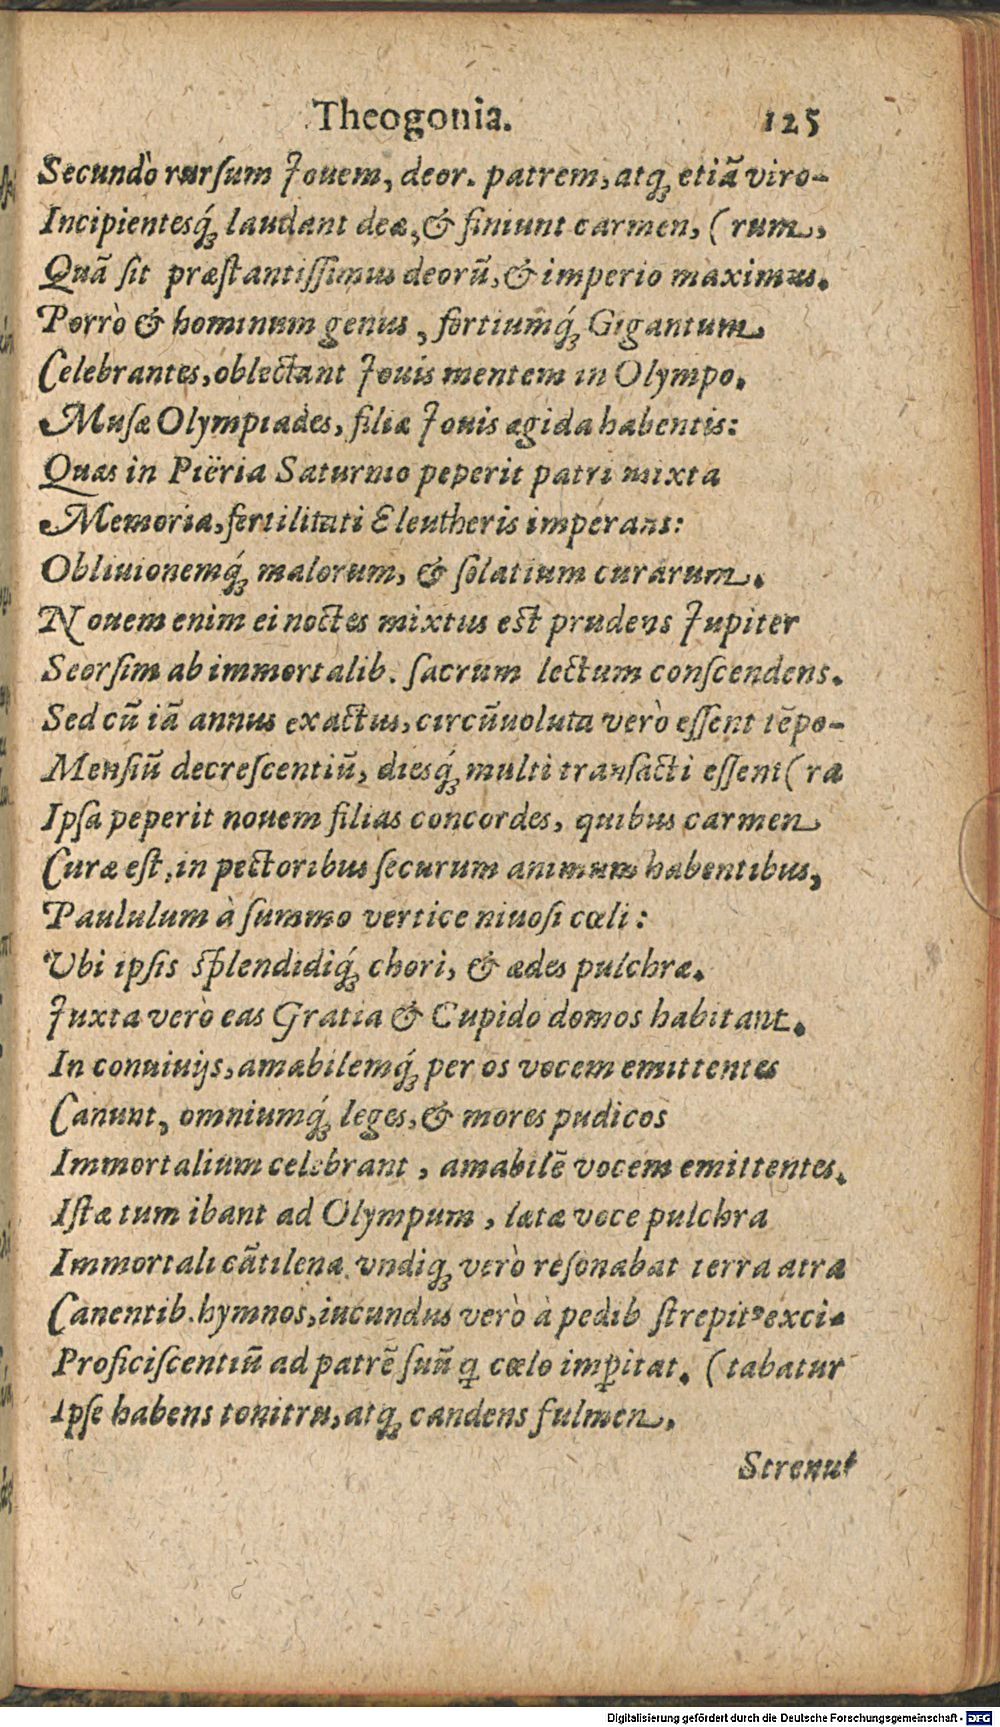 Theogonia. 125
Secundò rursum Jouem, deor. patrem, atq́ꝫ etiã viro-
Incipientesq́ꝫ laudant deæ, & finiunt carmen, (rum,
Quã sit præstantissimus deorũ, & imperio maximus.
Porrò & hominum genus, fortiumq́ꝫ Gigantum
Celebrantes, oblectant Jouis mentem in Olympo.
Musæ Olympiades, filiæ Jouis ægida habentis:
Quas in Piëria Saturnio peperit patri mixta
Memoria, fertilitati Eleutheris imperans:
Obliuionemq́ꝫ malorum, & solatium curarum.
Nouem enim ei noctes mixtus est prudens Jupiter
Seorsim ab immortalib. sacrum lectum conscendens.
Sed cũ iã annus exactus, circũuoluta verò essent tẽpo-
Mensiũ decrescentiũ, diesq́ꝫ multi transacti essent (ra
Ipsa peperit nouem filias concordes, quibus carmen
Curæ est, in pectoribus securum animum habentibus,
Paululum à summo vertice niuosi cœli:
Vbi ipsis splendidiq́ꝫ chori, & ædes pulchræ.
Juxta verò eas Gratia & Cupido domos habitant.
In conuiuijs, amabilemq́ꝫ per os vocem emittentes
Canunt, omniumq́ꝫ leges, & mores pudicos
Immortalium celebrant, amabilẽ vocem emittentes.
Istæ tum ibant ad Olympum, lætæ voce pulchra
Immortali cãtilena, vndiqꝫ verò resonabat terra atra
Canentib. hymnos, iucundus verò à pedib strepitꝰ exci-
Proficiscentiũ ad patrẽ suũ q̃ cœlo imꝑitat. (tabatur
Ipse habens tonitru, atqꝫ candens fulmen.
Strenue
Digitalisierung gefördert durch die Deutsche Forschungsgemeinschaft - DFG